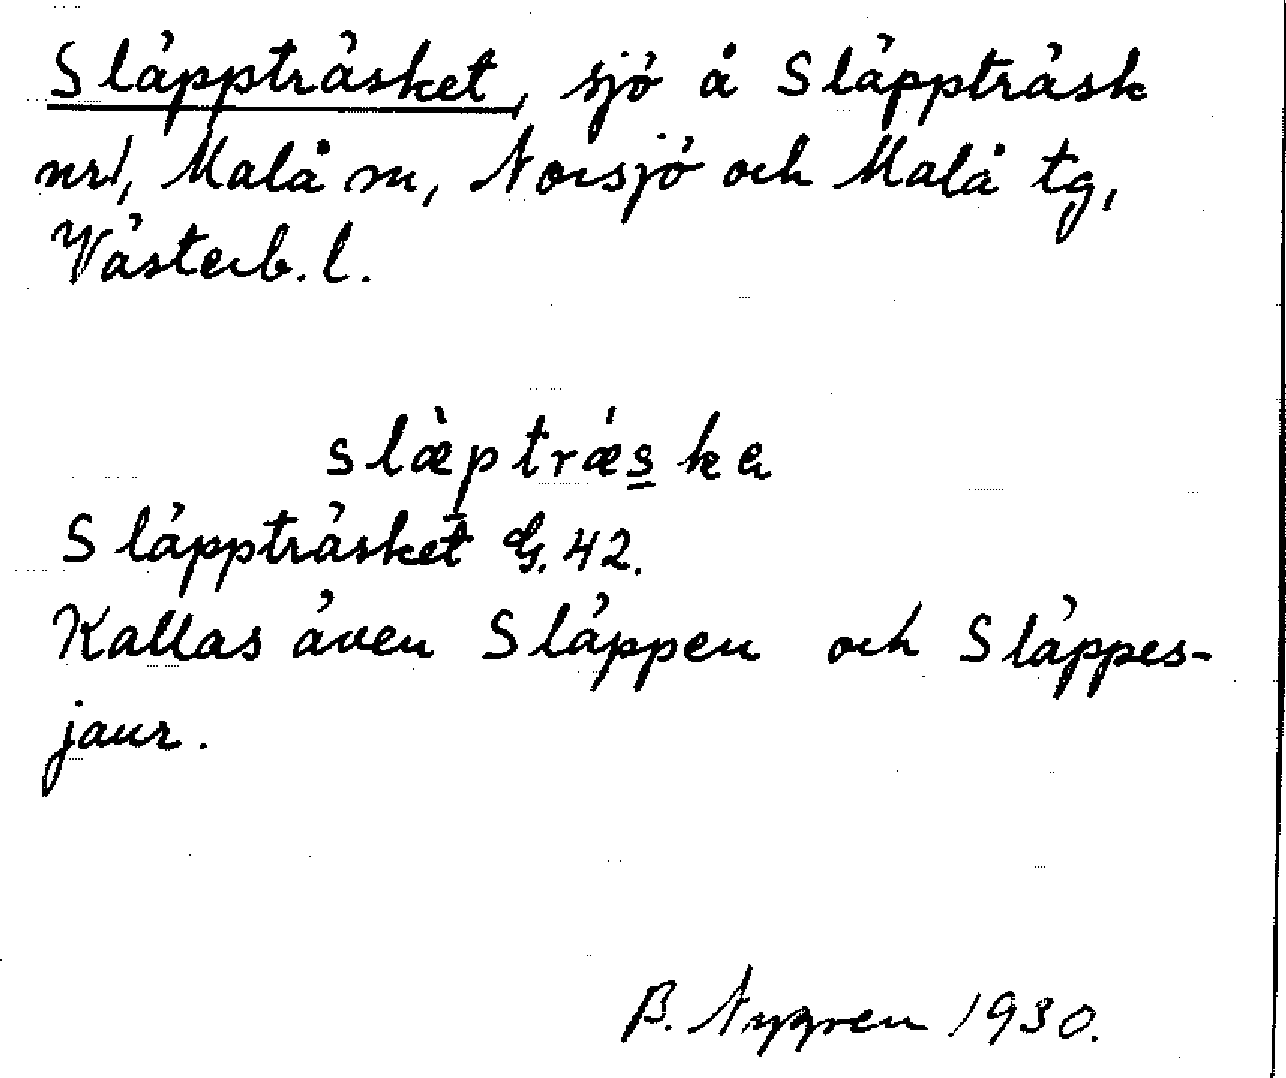 Släppträsket, sjö å Släppträsk
nr1, Malå sn, Norsjö och Malå tg,
Västerb. l.
slæ̀ptrǽs̲ka
Släppträsket G. 42.
Kallas även Släppen och Släppes-
jaur.
B. Nygren 1930.